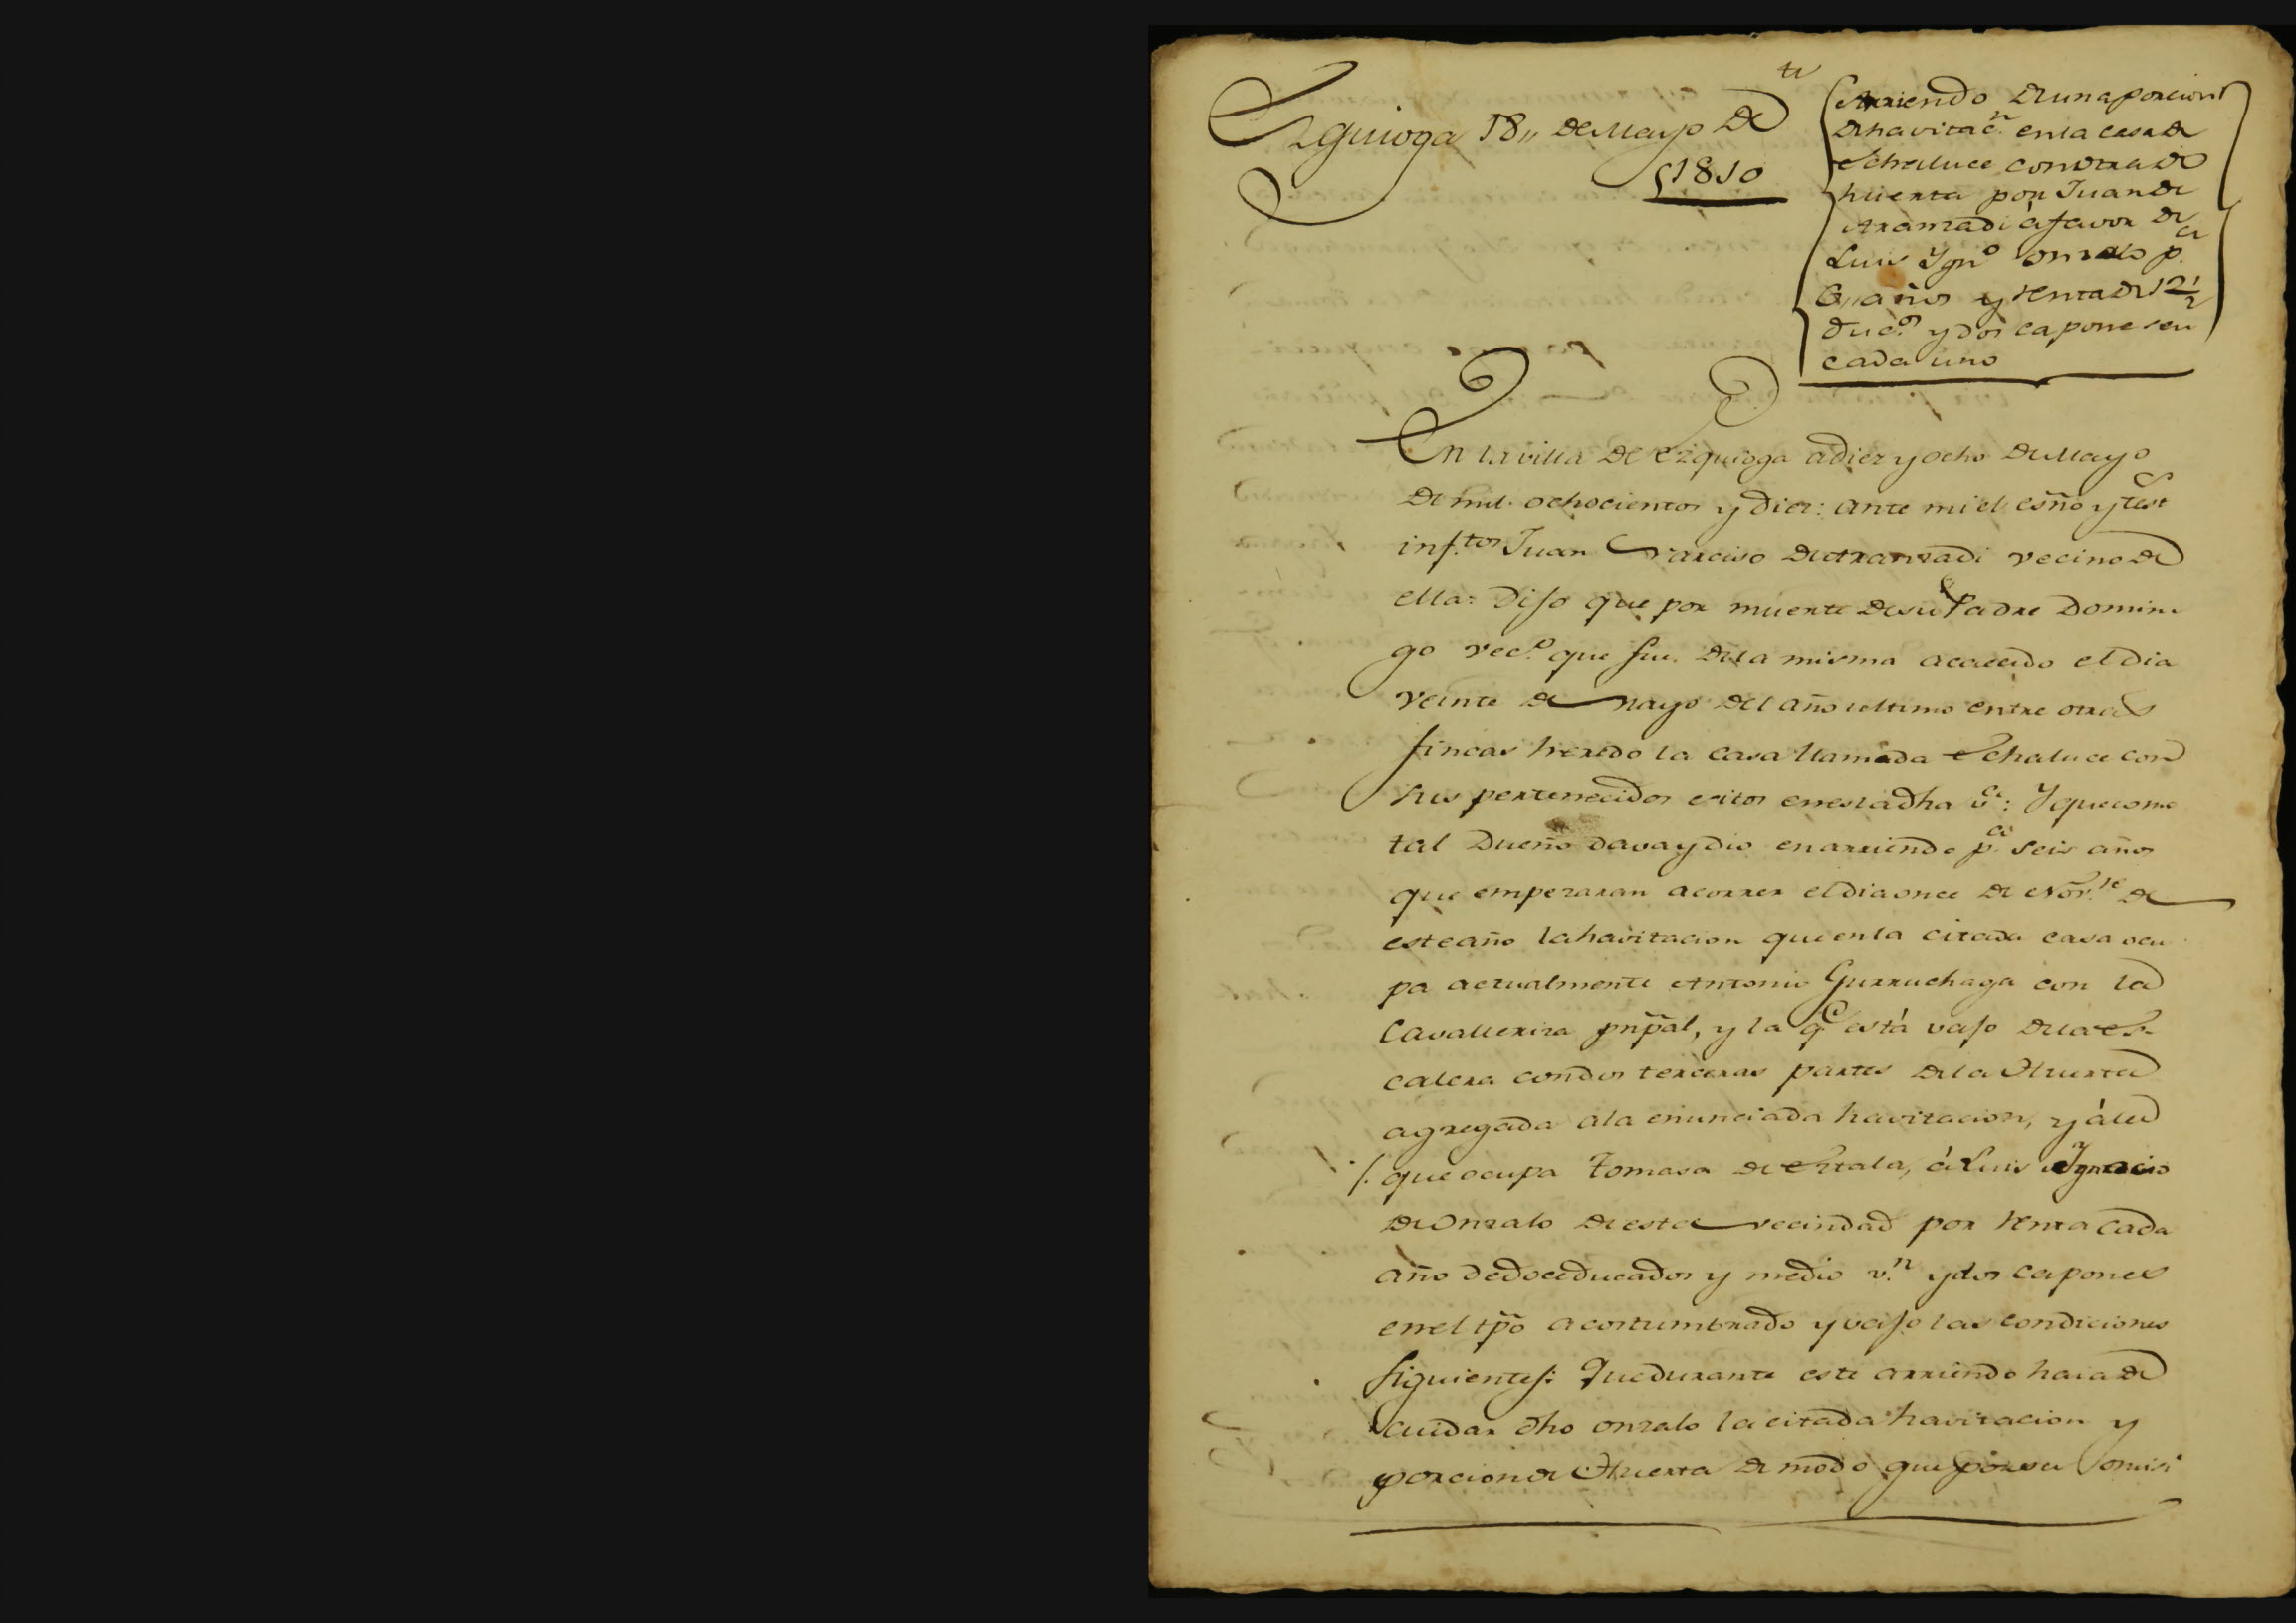 te
Ezquioga 18,, de Mayo de
1810
Arriendo de una porcion
de havitac.n en la casa de
Echaluce con otra de
huerta por Juan de
Aranzadi á favor de
Luis Ygn.o Onzalo p.a
6,, años y renta de 12 1/2
duc.s y dos capones en
cada uno
En la villa de Ezquioga a diez y ocho de Mayo
de mil ochocientos y diez: ante mi el esño y test
inf.tos Juan Narciso de Aranzadi vecino de
ella: Dijo que por muerte de su Padre Domin
go vec.o que fue de la misma acaecido el dia
veinte de Mayo del año ultimo entre otras
fincas heredo la casa llamada Echaluce con
sus pertenecidos sitos en esta dha v.a: Y que como
tal Dueño dava y dio en arriendo p.a seis años
que empezaran a correr el dia once de Nov.re de
este año la havitacion que en la citada casa ocu
pa actualmente Antonio Gurruchaga con la
Cavalleriza pñpal, y la q.e está vajo de la es-
calera con dos terceras partes de la Huerta
agregada a la enunciada havitacion, y á la
/. que ocupa Tomasa de Eztala, á Luis Ygnacio
de Onzalo de esta vecindad por renta cada
año de doce ducados y medio v.n y dos capones
en el tpõ acostumbrado y vajo las condiciones
siguientes: Que durante este arriendo haia de
cuidar dho Onzalo la citada havitacion y
porcion de Huerta de modo que por su omisi